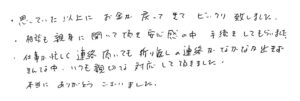 ・思っていた以上に お金が 戻って 来て ビックリ 致しました。
・相談も 親身に 聞いて頂き 安心感の中 手続き してもらいました
・仕事が忙しく 連絡 頂いても 折り返しの連絡が なかなか出来ま
せんでしたが、いつも 親切な 対応 して 頂きました。
本当に ありがとう ございました。